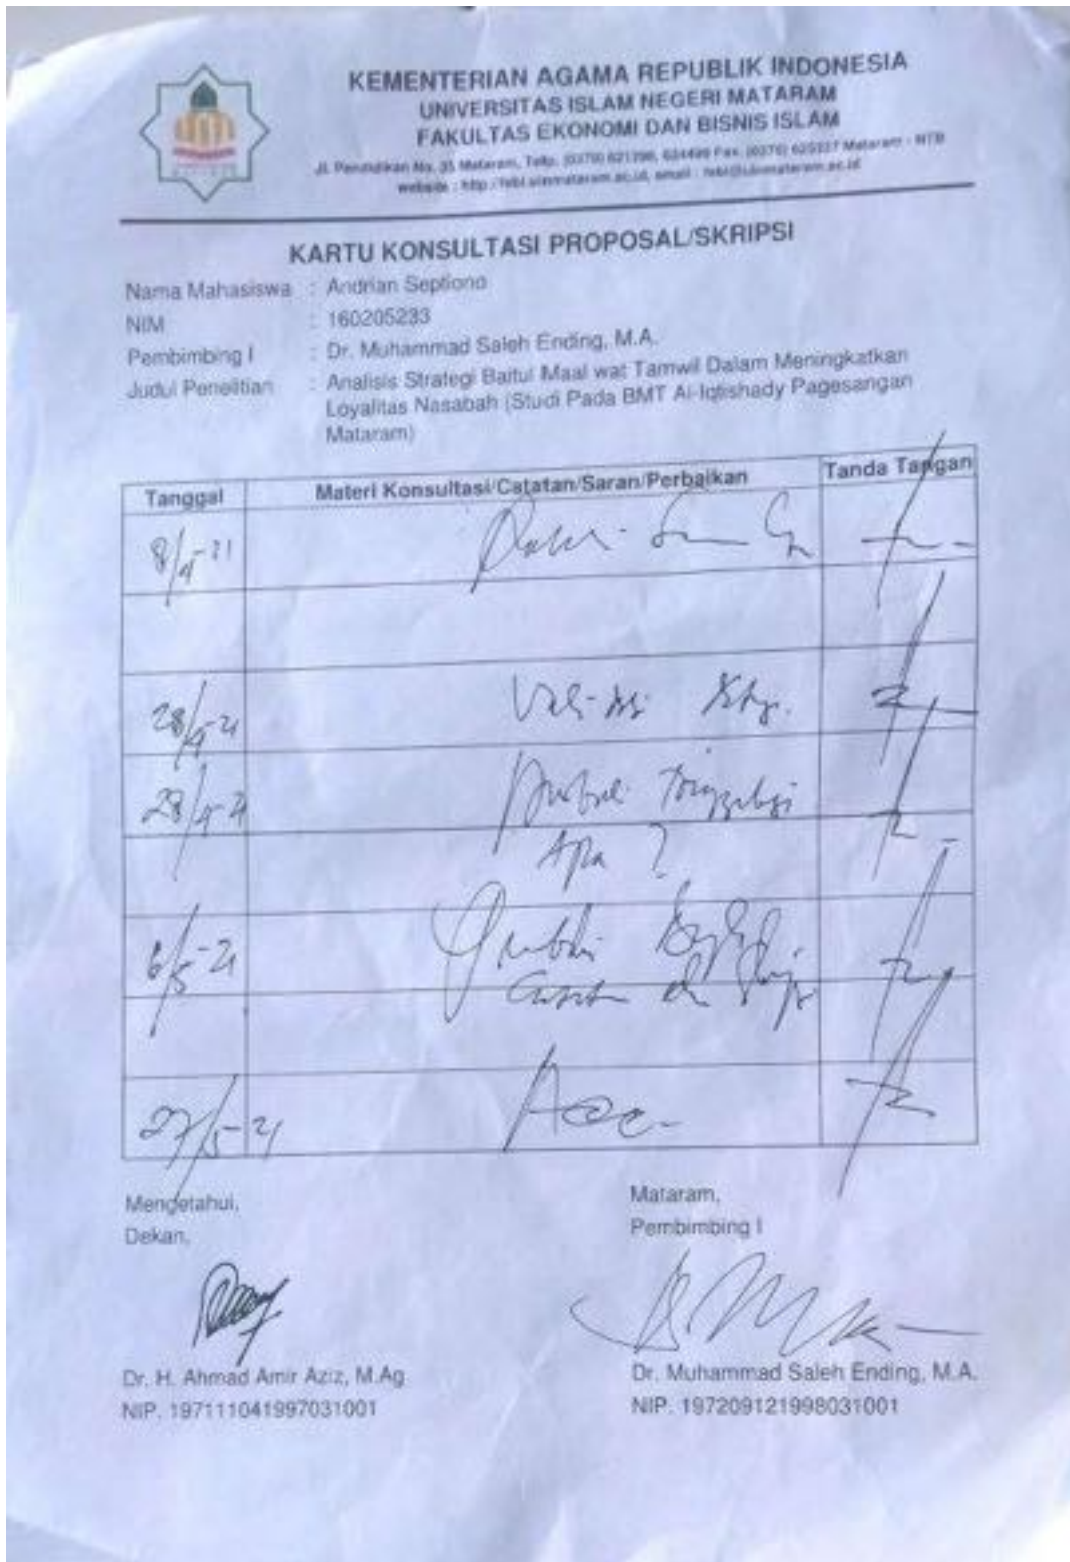 KEMENTERIAN AGAMA REPUBLIK INDONESIA
UNIVERSITAS ISLAM NEGERI MATARAM
FAKULTAS EKONOMI DAN BISNIS ISLAM
Jl. Pendidikan No. 35 Mataram, Telp. (0370) 621298, Fax. Mataram - NTB
website : email :
KARTU KONSULTASI PROPOSAL/SKRIPSI
Nama Mahasiswa : Andrian Septiono
NIM : 160205233
Pembimbing I : Dr. Muhammad Saleh Ending, M.A.
Judul Penelitian : Analisis Strategi Baitul Maal wat Tamwil Dalam Meningkatkan
Loyalitas Nasabah (Studi Pada BMT Al-Iqtishady Pagesangan
Mataram)
Tanggal Materi Konsultasi/Catatan/Saran/Perbaikan Tanda Tangan
8/4-21
28/4-21
28/4-21
Apa ?
6/5-21
27/5-21 Acc
Mengetahui,
Dekan,
Mataram,
Pembimbing I
Dr. H. Ahmad Amir Aziz, M.Ag
NIP. 197111041997031001
Dr. Muhammad Saleh Ending, M.A.
NIP. 197209121998031001